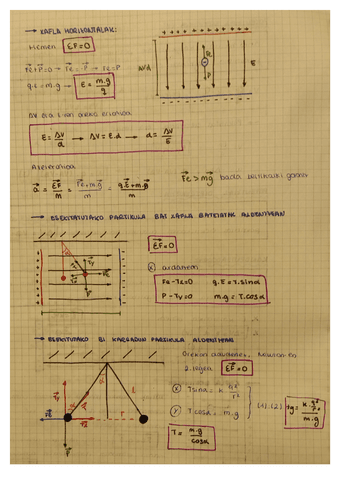 → XAFLA HORIZONTALAK:
Hemen ΣF=0
Fe+P=0 → Fe=-P → Fe=P
q.E = m.g → E = m.g/q
ΔV eta E-ren arteko erlazioa
E = ΔV/d → ΔV = E.d → d = ΔV/E
Azelerazioa
a = ΣF/m = Fe+m.g/m = q.E+m.g/m
Fe > mg bada partikulak gora
→ ESEKITUTAKO PARTIKULA BAT XAFLA BATZUEN ALDENTZEAN
ΣF=0
X ardatzean
Fe-Tx=0 q.E=T.sinα
P-Ty=0 m.g=T.cosα
→ ESEKITUTAKO BI KARGADUN PARTIKULA ALDENTZEAN
2. legea ΣF=0
X Tsinα = k q²/r²
Y Tcosα = m.g
(1):(2)
T = m.g/cosα